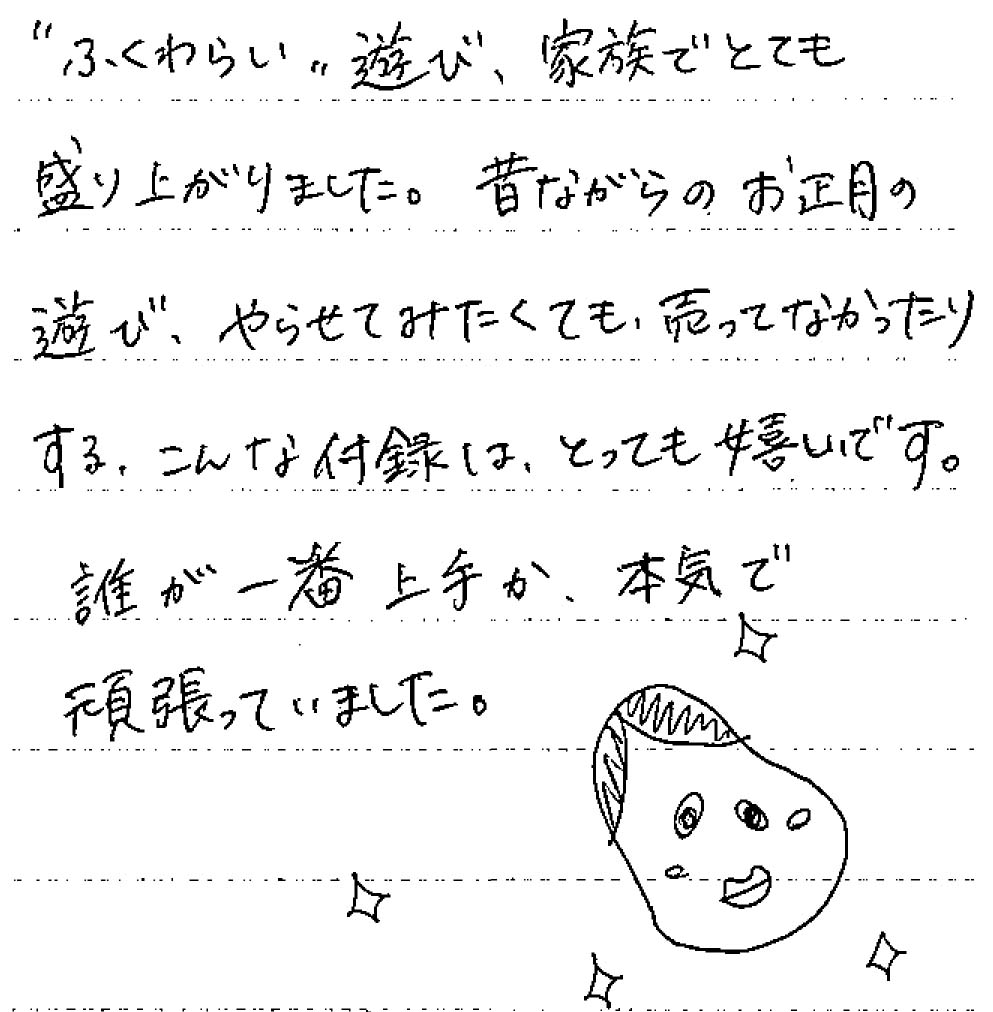 "ふくわらい"遊び、家族でとても
盛り上がりました。昔ながらのお正月の
遊び、やらせてみたくても、売ってなかったり
する、こんな付録は、とっても嬉しいです。
誰が一番上手か、本気で
頑張っていました。